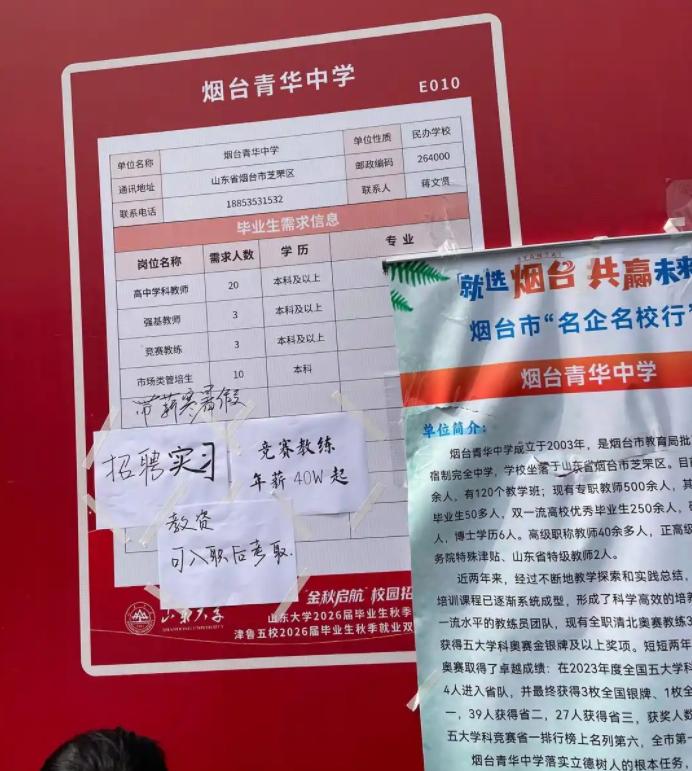 烟台青华中学
E010
单位名称 烟台青华中学 单位性质 民办学校
通讯地址 山东省烟台市芝罘区 邮政编码 264000
联系电话 18853531532 联系人 蒋文贤
毕业生需求信息
岗位名称 需求人数 学历 专业
高中学科教师 20 本科及以上
强基教师 3 本科及以上
竞赛教练 3 本科及以上
市场类管培生 10 本科
带薪寒暑假
招聘实习
竞赛教练
年薪40W起
教资
可入职后考取.
"金秋启航"校园招
山东大学
SHANDONG UNIVERSITY
山东大学2026届毕业生秋季
津鲁五校2026届毕业生秋季就业双
YANTAI
就选烟台 共赢未来
烟台市"名企名校行"
烟台青华中学
单位简介:
烟台青华中学成立于2003年,是烟台市教育局批
宿制完全中学,学校坐落于山东省烟台市芝罘区。目
余人,有120个教学班;现有专职教师500余人,其
毕业生50多人,双一流高校优秀毕业生250余人,
人,博士学历6人。高级职称教师40余多人,正高级
务院特殊津贴、山东省特级教师2人。
近两年来,经过不断地教学探索和实践总结,
培训课程已逐渐系统成型,形成了科学高效的培养
一流水平的教练员团队,现有全职清北奥赛教练3
获得五大学科奥赛金银牌及以上奖项。短短两年
奥赛取得了卓越成绩:在2023年度全国五大学科
4人进入省队,并最终获得3枚全国银牌、1枚全
一,39人获得省二,27人获得省三,获奖人数
五大学科竞赛省一排行榜上名列第六,全市第一
烟台青华中学落实立德树人的根本任务,